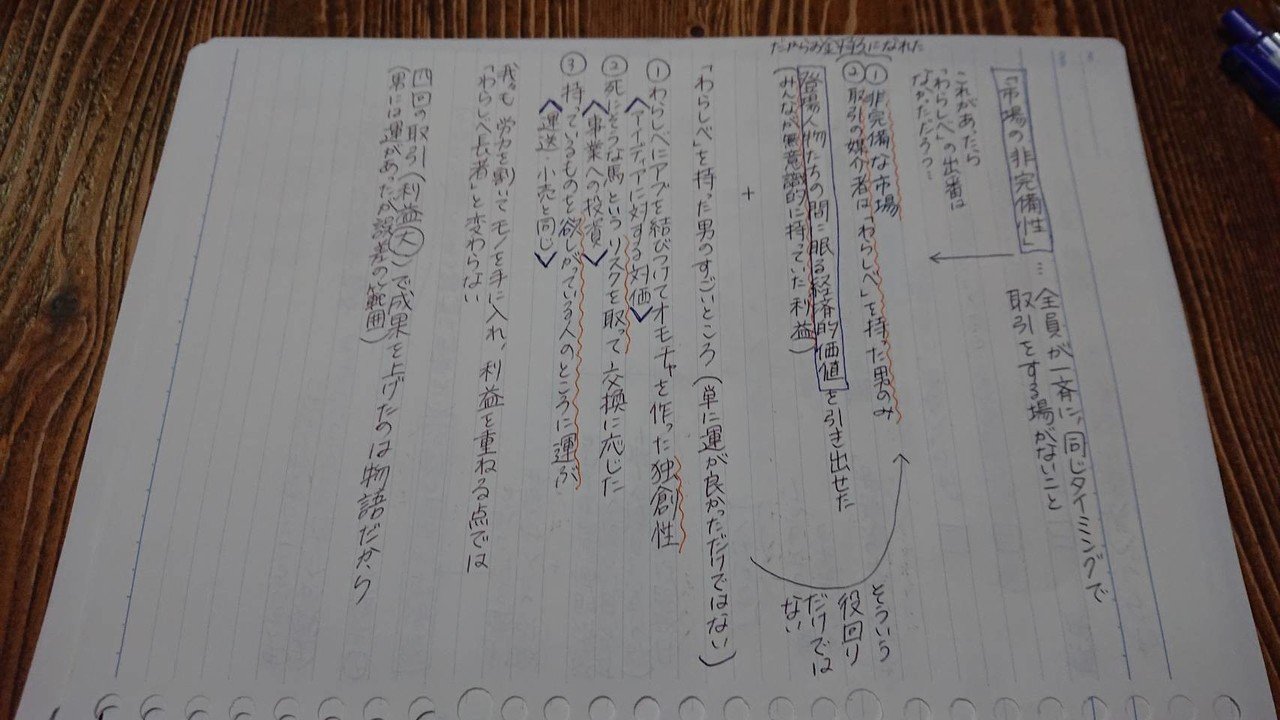 「市場の非完備性」… 全員が一斉に、同じタイミングで
取引をする場がないこと
これがあったら
「わらしべ」の出番は
なかっただろう…
だからお金持ちになれた
①非完備な市場
②取引の媒介者は「わらしべ」を持った男のみ
登場人物たちの間に眠る経済的価値を引き出せた
(みんなが無意識的に持っていた利益)
そういう
役回り
だけでは
ない
+
「わらしべ」を持った男のすごいところ(単に運が良かっただけではない)
①わらしべにアブを結びつけてオモチャを作った独創性
<アイディアに対する対価>
②死にそうな馬というリスクを取って交換に応じた
<事業への投資>
③持っているものを欲しがっている人のところに運ぶ
<運送・小売と同じ>
我々も労力を割いてモノを手に入れ、利益を重ねる点では
「わらしべ長者」と変わらない
四回の取引(利益大)で成果を上げたのは物語だから
(男には運があったが誤差の範囲)